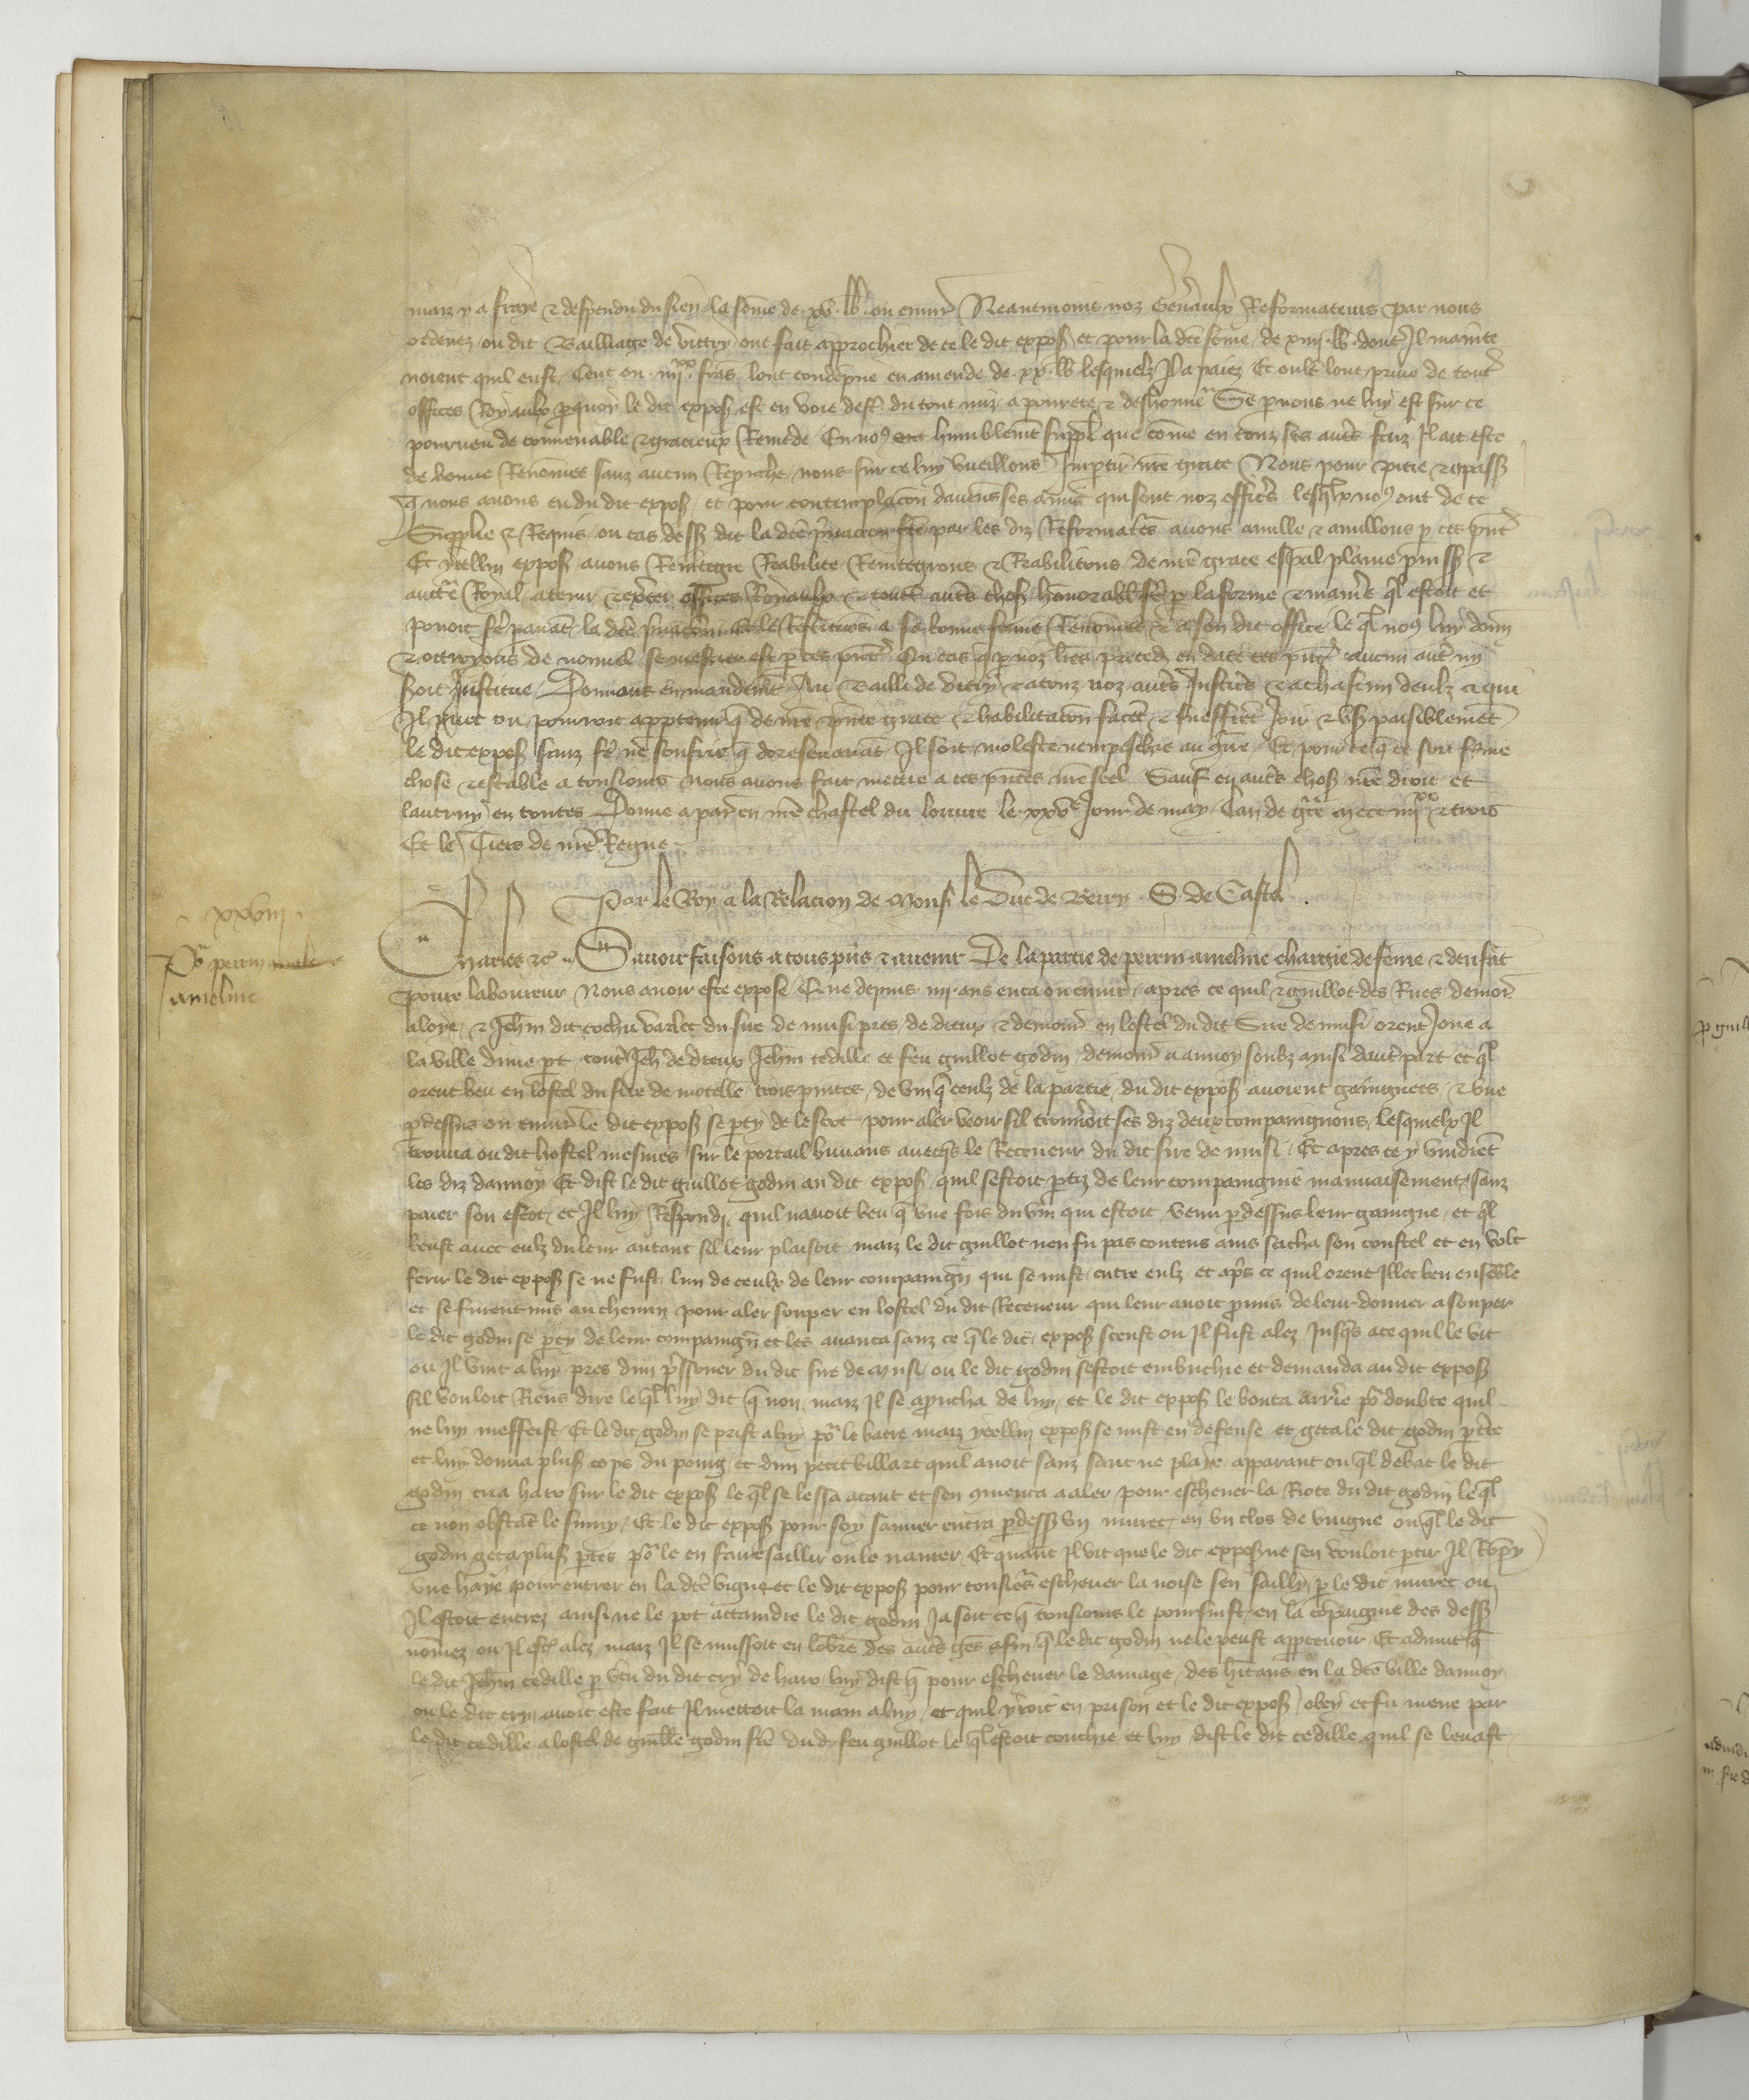 maiz y a fraye & despendu du sien la some de xv. lb. ou envir. Neantmoins noz generaulx Reformateurs par nous
ordenez ou dit Bailliage de vittry ont fait approchier de ce le dit expos et pour la dce some de xiiij lb. dont Il mainte
noient quil eust Cent ou iiij xx frans lont condempne en amende de xx lb lesquielz Il a paiez Et oult lont prive de tout
offices Royaulx pquoy le dit expos est en voie destre du tout mis a povrete & deshonneur Se p nous ne luy est sur ce
pourveu de convenable & gracieux Remede En nos humblemt suppl que come en touz ses autres faiz Il ait este
de bonne Renomee sanz aucun Reprouche nous sur ce luy vueillons Impartir nre grace Nous pour pitie & compass
q nous avons eu du dit expos et pour contemplacon daucuns ses amis qui sont noz officiers lesqlx nos ont de ce
Supplie & Requis ou cas dess dit la dce privacion fce par les diz Reformateurs avons anulle & anullons p ces pntes
Et ycellui expos avons Reintegre Reabilite Reintegrons & Reabilitons de nre grace espal plaine puiss &
aucte Royal a tenir & excer offices Royaulx & toutes autres choses honorables fe p la forme & maniere ql estoit et
povoit fe pavant la dce privacion & le Restituons a sa bonne fame Renomee & a son dit office le ql nos luy donn
& ottroyons de nouvel se mestier est p ces pntes Ou cas q p noz lres preced en date ces pntes aucun autre ny
soit Institue Donnans en mandemt Au Bailli de vitry & a touz noz autres Justiciers & a chascun deulx a qui
Il puet ou pourroit appartenir q de nre pnte grace & habilitacon facent & sueffrent Joir & user paisiblement
le dit expos sanz fe ne souffrir q doresenavant Il soit moleste nempeschie au contre Et pour ce q ce soit ferme
chose & estable a tousiours nous avons fait mettre a ces pntes nre seel Sauf en autres choses nre droit et
lautruy en toutes Donne a paris en nre chastel du louvre le xxve Jour de may Lan de gce mccc iiij xx & trois
Et le Tiers de nre Regne
Par le Roy a la Relacion de Mons le Duc de Berry S. de Castel
xxviij
Po perrin
ameline
Charles &c Savoir faisons a tous pns & avenir De la partie de perrin ameline chargie de feme & denfant
povre laboureur Nous avoir este expose Que depuis iiij ans enca ou environ apres ce quil & guillot des Rues demor
a loye & Jehan dit cochu varlet du sire de musi pres de dreux & demour en lostel du dit Sire de musi orent Joue a
la ville dune pt contre Jeh de dreux Jehan cedille et feu guillot godin demour a annoy soubz musi dautre part et ql
orent beu en lostel du sire de motelle trois pintes de vin q ceulx de la partie du dit expos avoient gaingnees & une
pdessus ou envir le dit expos se pty de lescot pour aler veoir sil trouveroit ses diz deux compaingnons lesquielx Il
trouva ou dit hostel mesmes sur le portail buvans avecqs le Receveur du dit sire de musi Et apres ce y vindrent
les diz dannoy Et dist le dit guillot godin au dit expos quil sestoit ptiz de leur compaignie mauvaisement sanz
paier son escot et Il luy Respondi quil navoit beu q une fois du vin qui estoit venu pdessus leur gaingne et ql
beust avec eulz du leur autant sil leur plaisoit maiz le dit guillot nen fu pas contens ains sacha son coustel et en volt
ferir le dit expos se ne fust lun de ceulx de leur compaingn qui se mist entre eulz et aprs ce quil orent Illec beu ensemble
et se furent mis au chemin pour aler souper en lostel du dit Receveur qui leur avoit promis de leur donner a souper
le dit godin se pty de leur compaingn et les avanca sanz ce q le dit expos sceust ou Il fust alez Jusqs a ce quil le vit
ou Il vint a luy pres dun pssoner du dit sire de Musi ou le dit godin sestoit embuchie et demanda au dit expos
sil vouloit Riens dire le ql luy dit q non maiz Il se aproucha de luy et le dit expos le bouta arrie po doubte quil
ne luy meffeist Et le dit godin se prist a luy po le batre maiz ycellui expos se mist en defense et geta le dit godin p tre
et luy donna plus cops du poing et dun petit billart quil avoit sanz sanc ne plaie apparant ou ql debat le dit
godin cria haro sur le dit expos le ql se lessa atant et sen comenca a aler pour eschever la Riote du dit godin le ql
ce non obstant le suivy Et le dit expos pour soy sauver entra pdess un muret en un clos de vingne ou ql le dit
godin geta plus pres po le en faire saillir ou le navrer Et quant Il vit que le dit expos ne sen vouloit ptir Il Rompy
une haye pour entrer en la dce vigne et le dit expos pour tousiours eschever la noise sen sailly p le dit muret ou
Il estoit entrez ainsi ne le pot attaindre le dit godin Ja soit ce q tousiours le poursuist en la compaignie des dess
nomez ou Il est alez maiz Il se mussoit en lombre des autres gens afin q le dit godin ne le peust appcevoir Et advint q
le dit Jehan cedille p vtu du dit cry de haro luy dist q pour eschever le damage des hitans en la dce ville dannoy
ou le dit cry avoit este fait Il mettoit la main a luy et quil yroit en prison et le dit expos obey et fu mene par
le dit cedille a lostel de guille godin fre du d feu guillot le ql estoit couchie et luy dist le dit cedille quil se levast